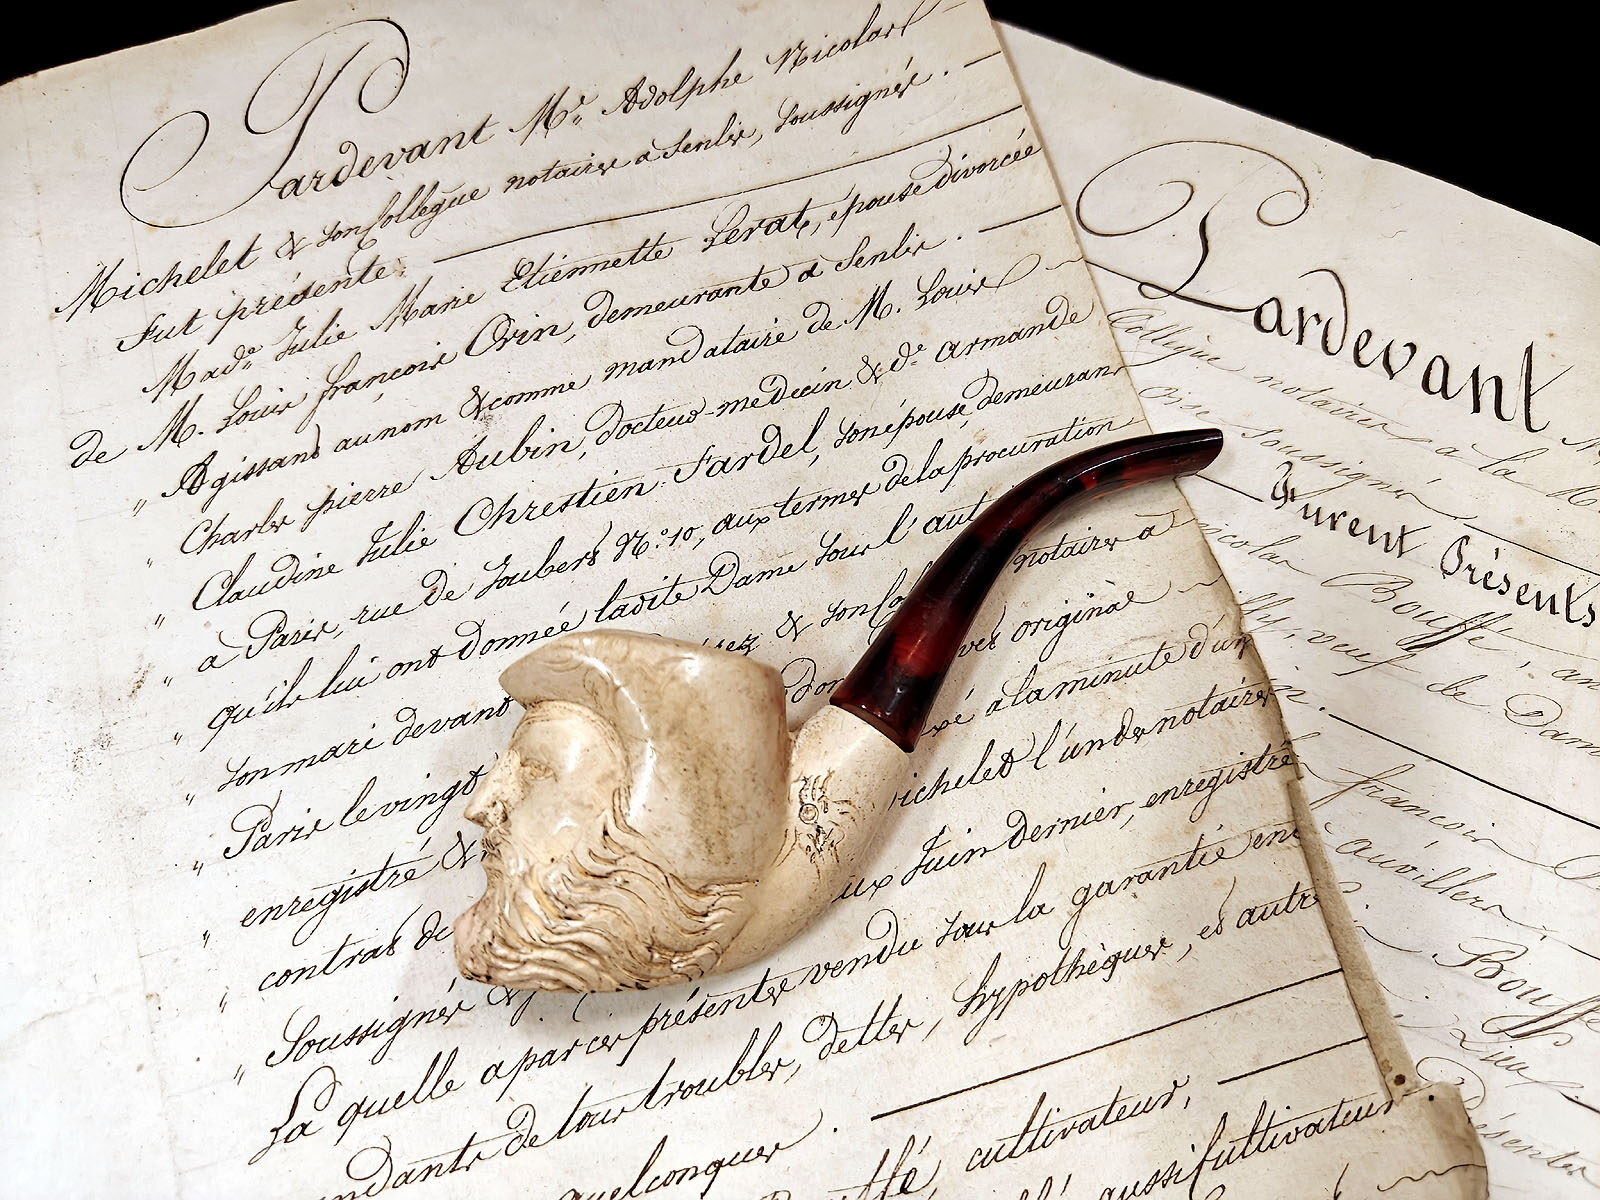 Pardevant Me. Adolphe Nicolas
Michelet & son Collegue notaires a Senlis, Soussignés. —
Fut présente. —
Made. Julie Marie Etiennette Lerat, epouse divorcée
de M. Louis françois Orin, demeurante a Senlis. —
„ Agissans au nom & comme mandataire de M. Louis
„ Charles pierre Aubin, docteur-medecin & de. armande
„ Claudine Julie Chrestien Fardel, son épouse, demeurans
„ a Paris, rue de Joubert No. 10, aux termes de la procuration
„ qu'ils lui ont donnée ladite Dame sous l'aut
„ son mari devant & son Co notaires a
„ Paris le vingt don original
„ enregistré & a la minute d'un
„ contrat de ichelet l'un des notaires
„ Soussignés & ux Juin dernier, enregistré
La quelle a par ces présentes vendu sous la garantie en
ndante de tous troubles, dettes, hypothèques, et autre
quelconques. —
ffé, cultivateur, —
aussi Cultivateur.
Pardevant
Collegue notaires a la
Oise Soussignés
Furent Présents
icolas Bouffé, an
veuf de Dam
francois
auvillers
Bouffé